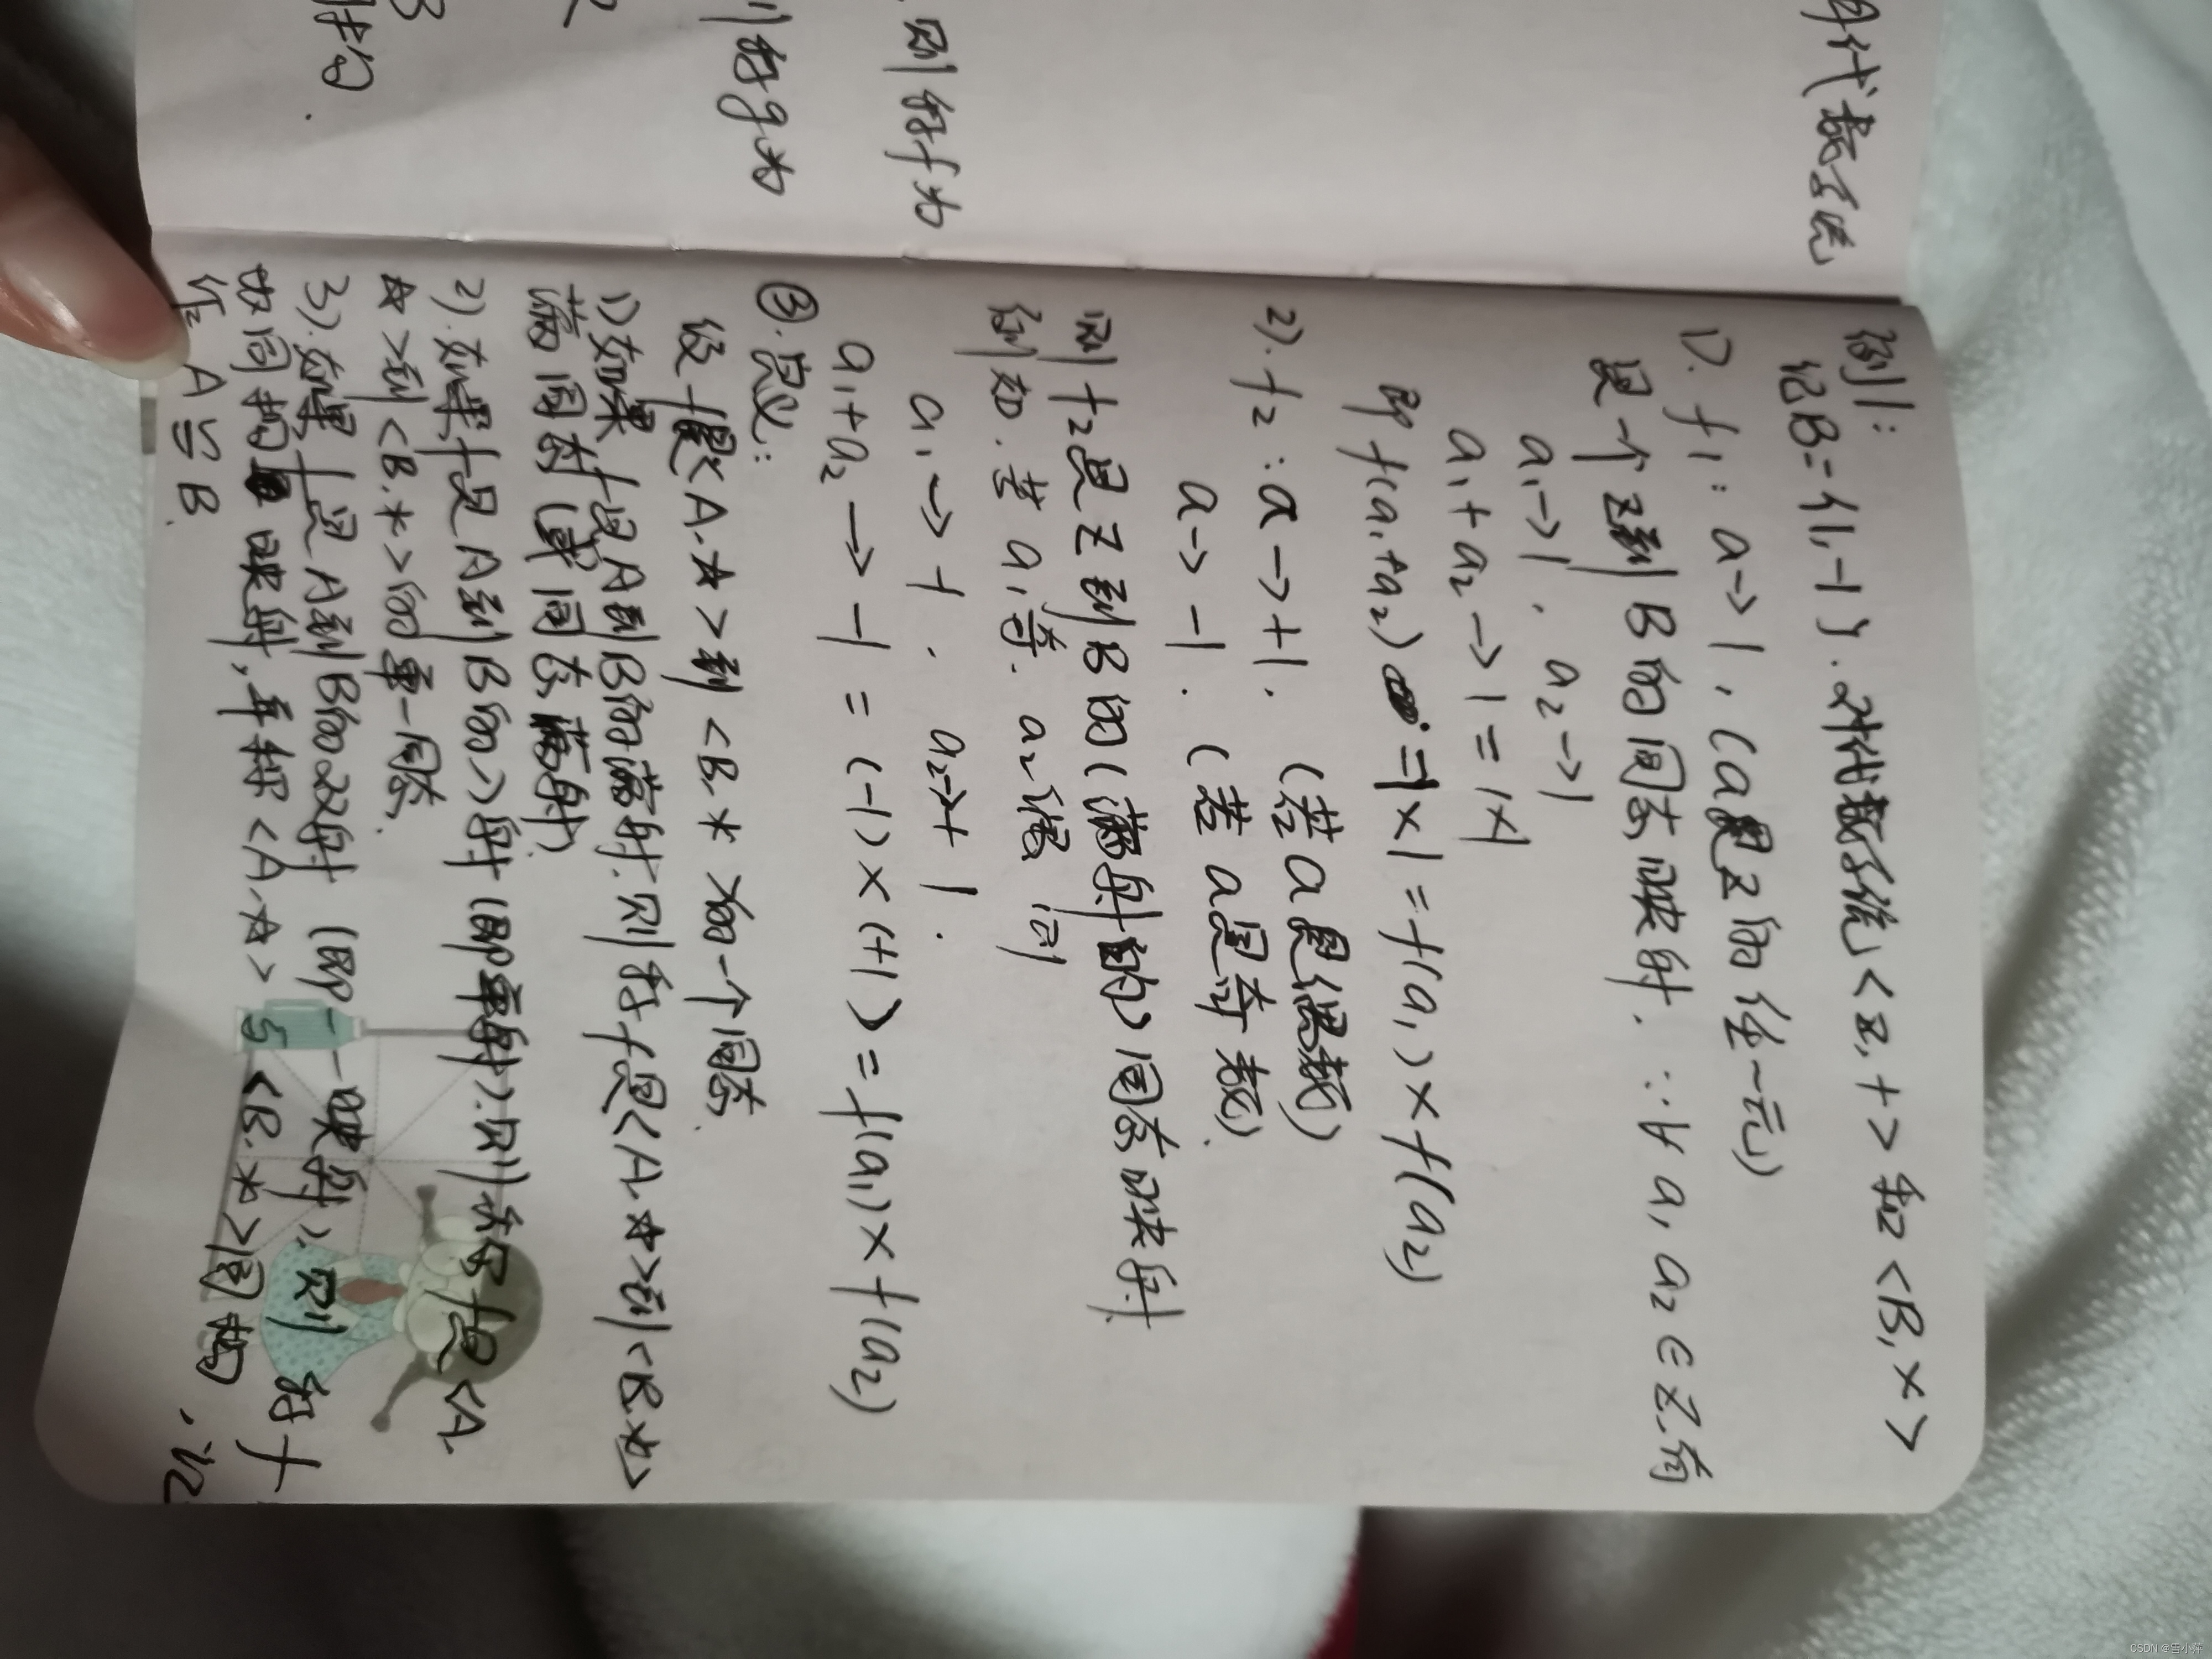 身代数系统
则称f为
则称g为
例1:
记B={1,-1}.对代数系统<Z,+>和<B,×>
1). f₁: a→1, (a是Z的任一元)
是一个Z到B的同态映射. ∵∀ a₁ a₂∈Z.有
a₁→1, a₂→1
a₁+a₂→1=1×1
即f(a₁+a₂)=1×1=f(a₁)×f(a₂)
2). f₂: a→+1. (若a是偶数)
a→-1. (若a是奇数)
则f₂是Z到B的(满射的)同态映射
例如.若a₁奇.a₂偶 问
a₁→-1. a₂→+1.
a₁+a₂→-1=(-1)×(+1)=f(a₁)×f(a₂)
③.定义:
设f是<A.☆>到<B.*>的一个同态.
1)如果f是A到B的满射.则称f是<A.☆>到<B.*>
满同态(或同态满射).
2).如果f是A到B的>射(即单射).则称f是<A.
☆>到<B.*>的单一同态.
3).如果f是A到B的双射(即一一映射).则称f
为同构映射,并称<A.☆>与<B.*>同构.记
作A≌B.
CSDN @雪小萍